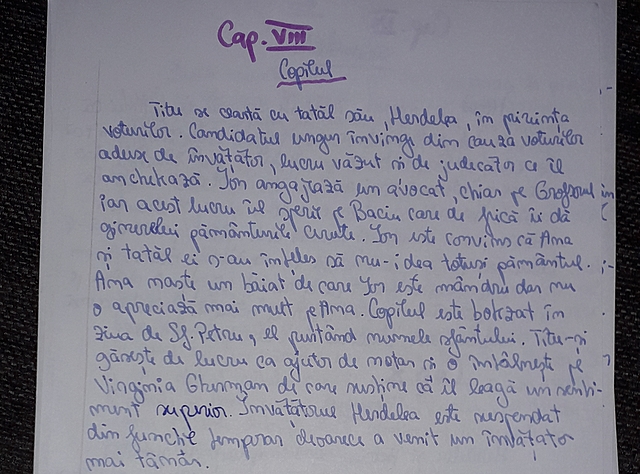 Cap. VIII
Copilul
Titu se ceartă cu tatăl său, Herdelea, în privința
voturilor. Candidatul ungur învinge din cauza voturilor
aduse de învățător, lucru văzut și de judecător ce îl
anchekază. Ion angajează un avocat, chiar pe Grofșorul
iar acest lucru îl sperie pe Baciu care de frică îi dă
ginerelui pământurile cerute. Ion este convins că Ana
și tatăl ei s-au înțeles să nu-i dea totuși pământul.
Ana naște un băiat de care Ion este mândru dar nu
o apreciază mai mult pe Ana. Copilul este botezat în
ziua de Sf. Petru, el purtând numele sfântului. Titu-și
găsește de lucru ca ajutor de notar și o întâlnește pe
Virginia Gherman de care susține că îl leagă un senti-
ment superior. Învățătorul Herdelea este suspendat
din funcție temporar deoarece a venit un învățător
mai tânăr.